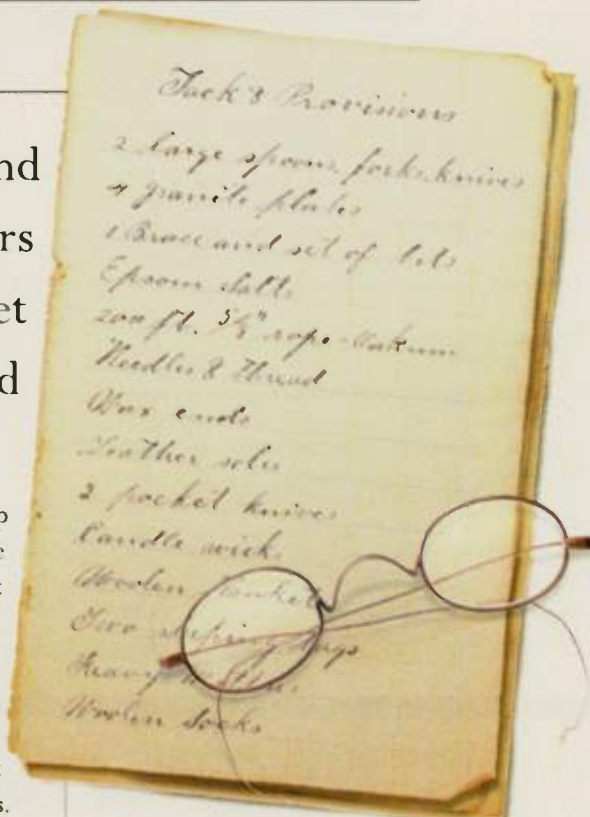 nd
rs
et
d
Jack's Provisions
2 large spoons, forks, knives
4 granite plates
1 Brace and set of bits
Epsom salts
200 ft. 5/8" rope - Oakum
Needles & Thread
Wax ends
Leather
2 pocket knives
Candle wick
Woolen blankets
Two sleeping bags
Heavy
Woolen Socks
s.